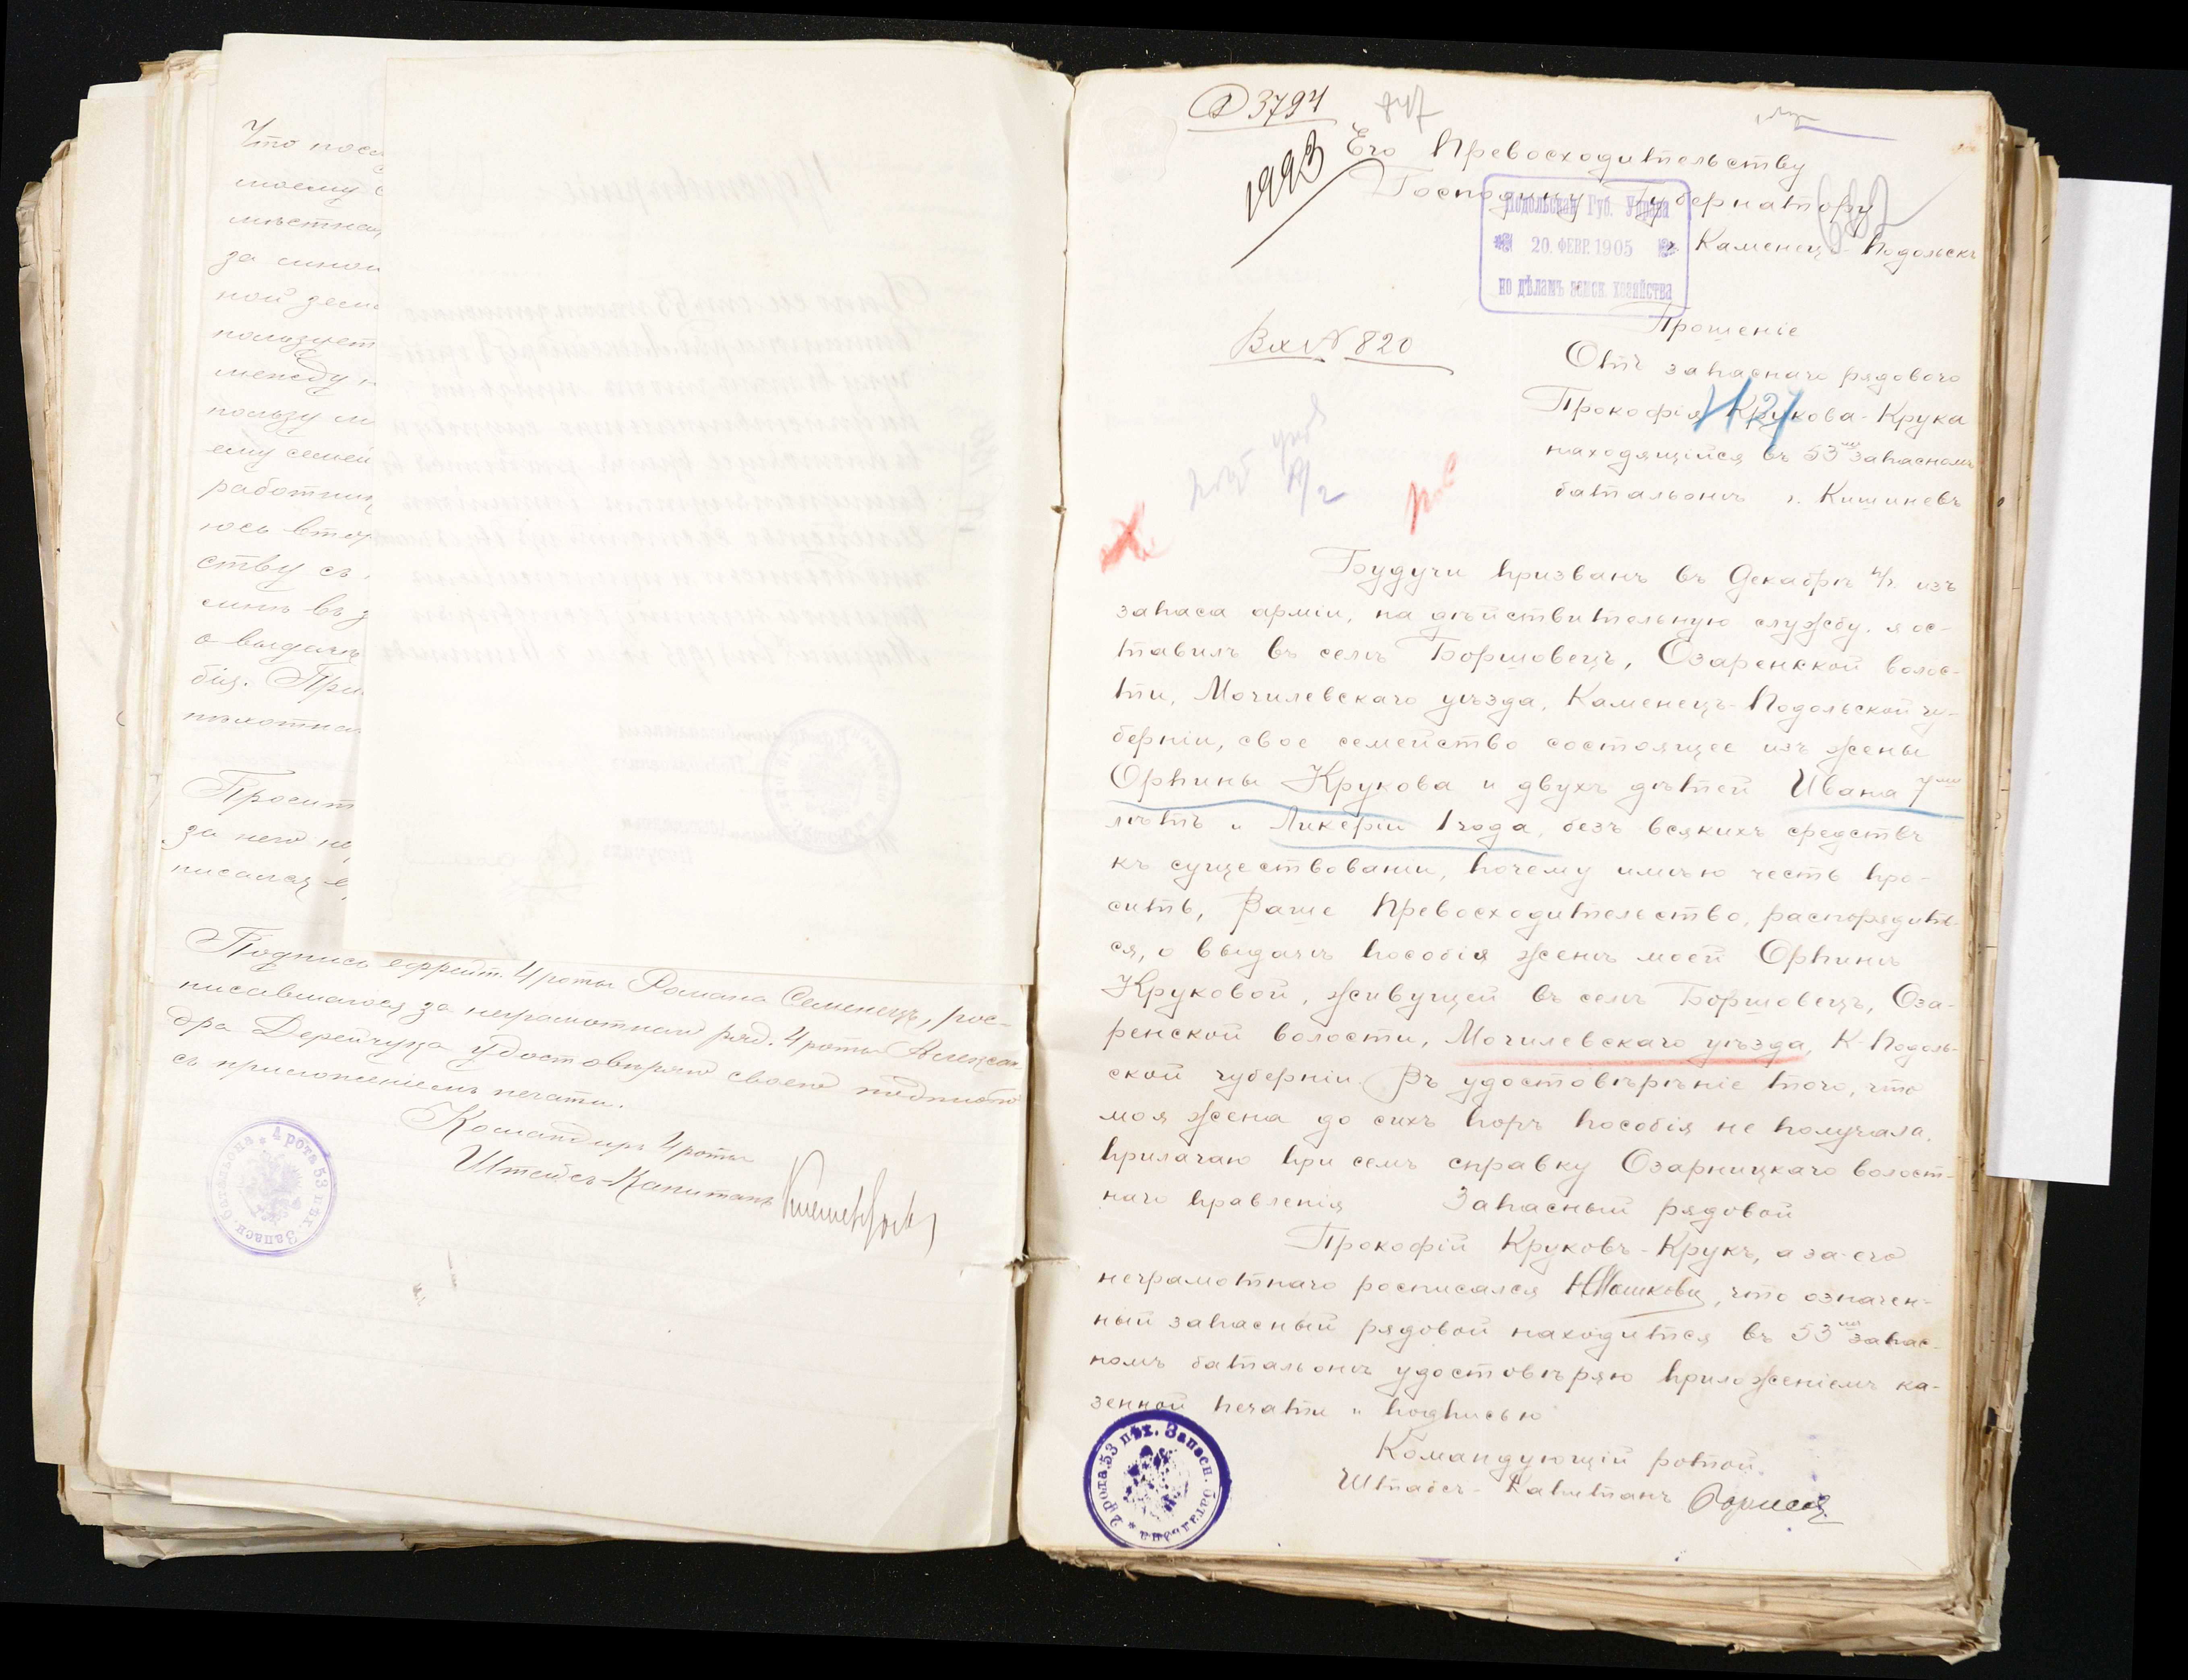 Что посл
моему с
мѣстна
за мною
ной земл
пользует
между н
пользу м
ему семей
работни
юсь втор
ству съ
симъ въ з
о выдачѣ
бія. При
пѣхотна
Просит
за него не
писался е
Подпись ефрейт. 4 роты Романа Семенецъ, рос-
писавшагося за неграмотнаго ряд. 4 роты Алексан
дра Дерейчука удостовѣряю своею подписью
съ приложеніемъ печати.
Командиръ 4 роты
Штабсъ-Капитанъ
4 рота 53 пѣх. Запасн. батальона
3794
847
1993
Его Превосходительству
Господину Губернатору
г. Каменецъ-Подольскъ
Подольская Губ. Управа
20. ФЕВР. 1905
по дѣламъ земск. хозяйства
Вх № 820
Прошеніе
Отъ запаснаго рядового
Прокофія Крукова-Крука
находящійся въ 53мъ запасномъ
батальонѣ г. Кишиневъ
Будучи призванъ въ Декабрѣ п/г. изъ
запаса арміи, на дѣйствительную службу, я ос-
тавилъ въ селѣ Боршовецъ, Озаренской волос-
ти, Могилевскаго уѣзда, Каменецъ-Подольской гу-
берніи, свое семейство состоящее изъ жены
Орпины Крукова и двухъ дѣтей Ивана 7ми
лѣтъ и Ликеріи 1 года, безъ всякихъ средствъ
къ существованіи, почему имѣю честь про-
сить, Ваше Превосходительство, распорядить-
ся, о выдачѣ пособія женѣ моей Орпинѣ
Круковой, живущей въ селѣ Боршовецъ, Оза-
ренской волости, Могилевскаго уѣзда, К-Подоль-
ской губерніи. Въ удостовѣрѣніе того, что
моя жена до сихъ поръ пособія не получала,
прилагаю при семъ справку Озарницкаго волост-
наго правленія Запасный рядовой
Прокофій Круковъ-Крукъ, а за его
неграмотнаго росписался Н. Машковъ, что означен-
ный запасный рядовой находится въ 53мъ запас-
номъ батальонѣ удостовѣряю приложеніемъ ка-
зенной печати и подписью
Командующій ротой
Штабсъ-Капитанъ
2 рота. 53 пѣх. Запасн. батальона